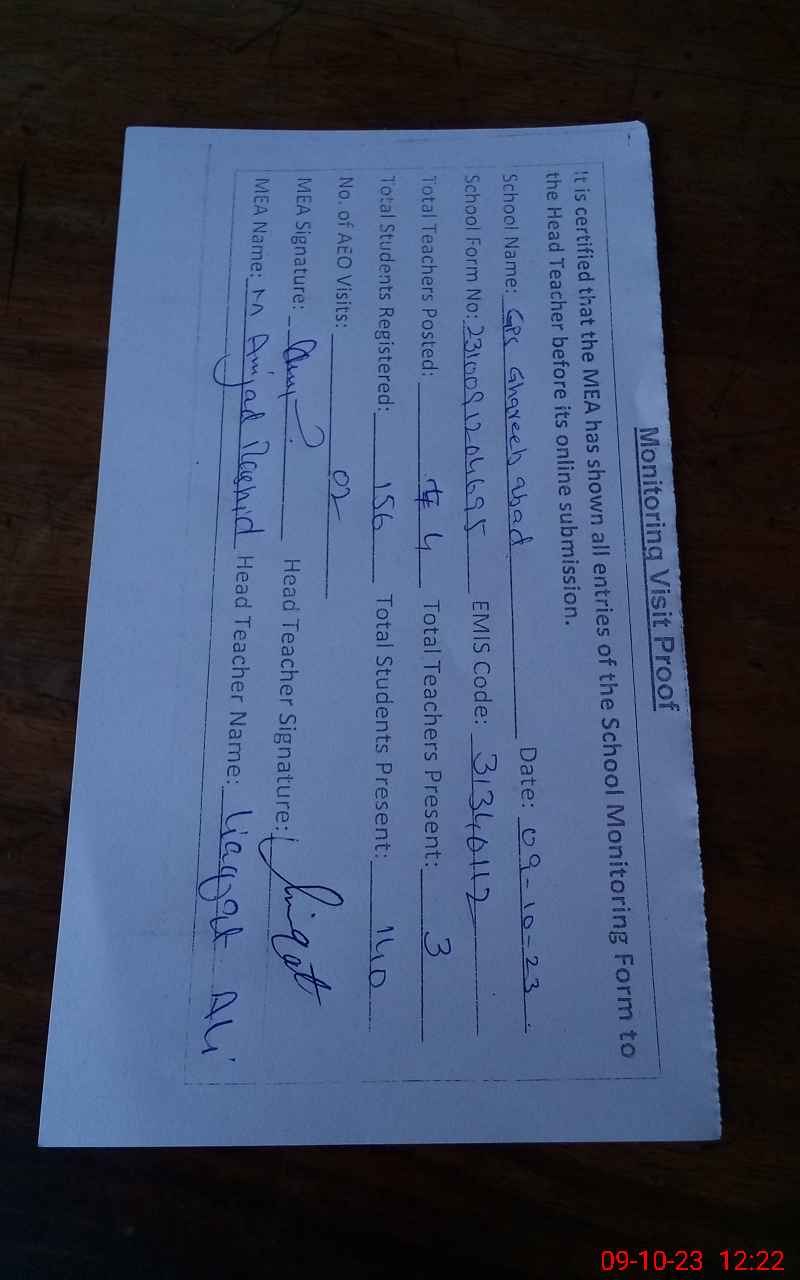 Monitoring Visit Proof
It is certified that the MEA has shown all entries of the School Monitoring Form to
the Head Teacher before its online submission.
School Name: GPS Ghareeb abad Date: 09-10-23
School Form No: EMIS Code: 31340112
Total Teachers Posted: 4 Total Teachers Present: 3
Total Students Registered: 156 Total Students Present: 140
No. of AEO Visits: 02
MEA Signature: Head Teacher Signature: Liaqat
MEA Name: M Amjad Rashid Head Teacher Name: Liaqat Ali
09-10-23 12:22